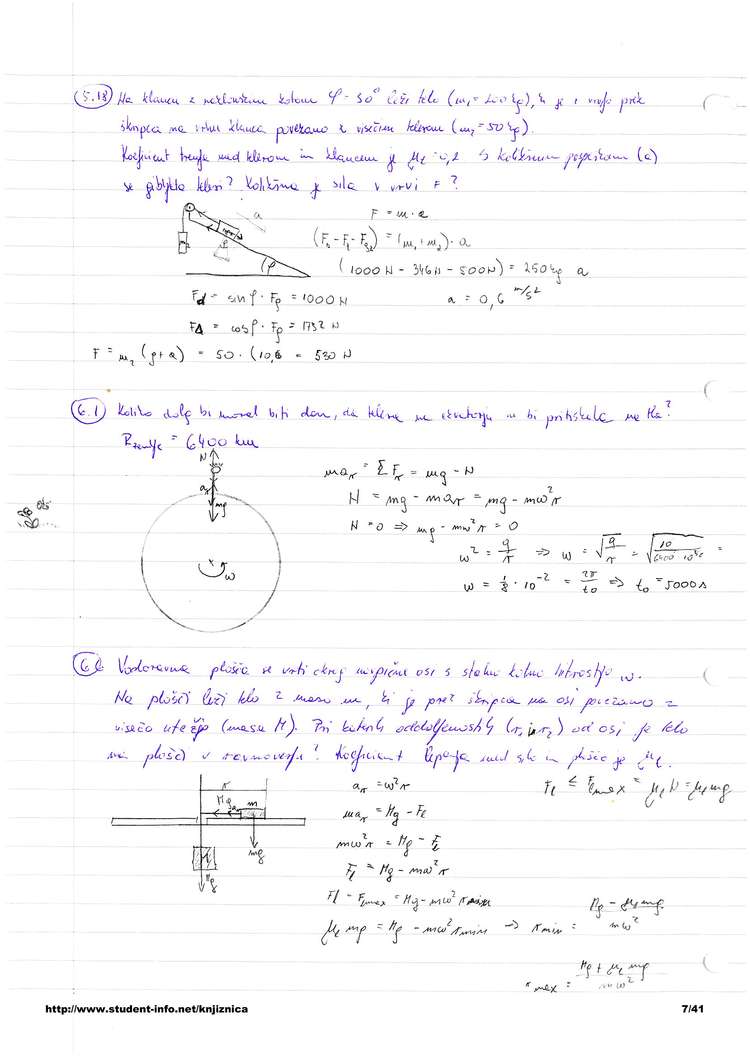 5.18 Na klancu z naklonskim kotom φ = 30° leži telo (m₁ = 200 kg), ki je z vrvjo prek
škripca na vrhu klanca povezano z visečim telesom (m₂ = 50 kg).
Koeficient trenja med telesom in klancem je μt = 0,2. S kolikšnim pospeškom (a)
se gibljeta telesi? Kolikšna je sila v vrvi F?
a
F = m · a
m₂
φ
(m₁ + m₂) · a
(1000 N - 346 N - 500 N) = 250 kg a
Fd = sin φ · Fg = 1000 N
a = 0,6 m/s²
= cos φ · Fg = 1732 N
F = m₂ (g + a) = 50 · (10,6 = 530 N
6.1 Koliko dolg bi moral biti dan, da telesa na ekvatorju ne bi pritiskala na tla?
Rzemlje = 6400 km
N
mar = Σ Fr = mg - N
ar
mg
N = mg - mar = mg - mω²r
N = 0 ⇒ mg - mω²r = 0
ω² = g/r ⇒ ω = √(g/r) = √(10/
ω
ω = 1/8 · 10⁻² = 2π/t₀ ⇒ t₀ = 5000 s
Vodoravna plošča se vrti okrog navpične osi s stalno kotno hitrostjo ω.
Na plošči leži telo z maso m, ki je prek škripca na osi povezano z
visečo utežjo (masa M). Pri katerih oddaljenostih (r₁ in r₂) od osi je telo
na plošči v ravnovesju? Koeficient lepenja med telo in ploščo je μl.
r
ar = ω²r
Fl ≤ Flmax = μl N = μl mg
Mg
m
mar = Mg - Fl
mω²r = Mg - Fl
mg
Fl = Mg - mω²r
Mg
Fl = Flmax = Mg - mω² rmin
μl mg = Mg - mω² rmin → rmin = (Mg - μl mg)/(mω²)
rmax = (Mg + μl mg)/(mω²)
http://www.student-info.net/knjiznica
7/41